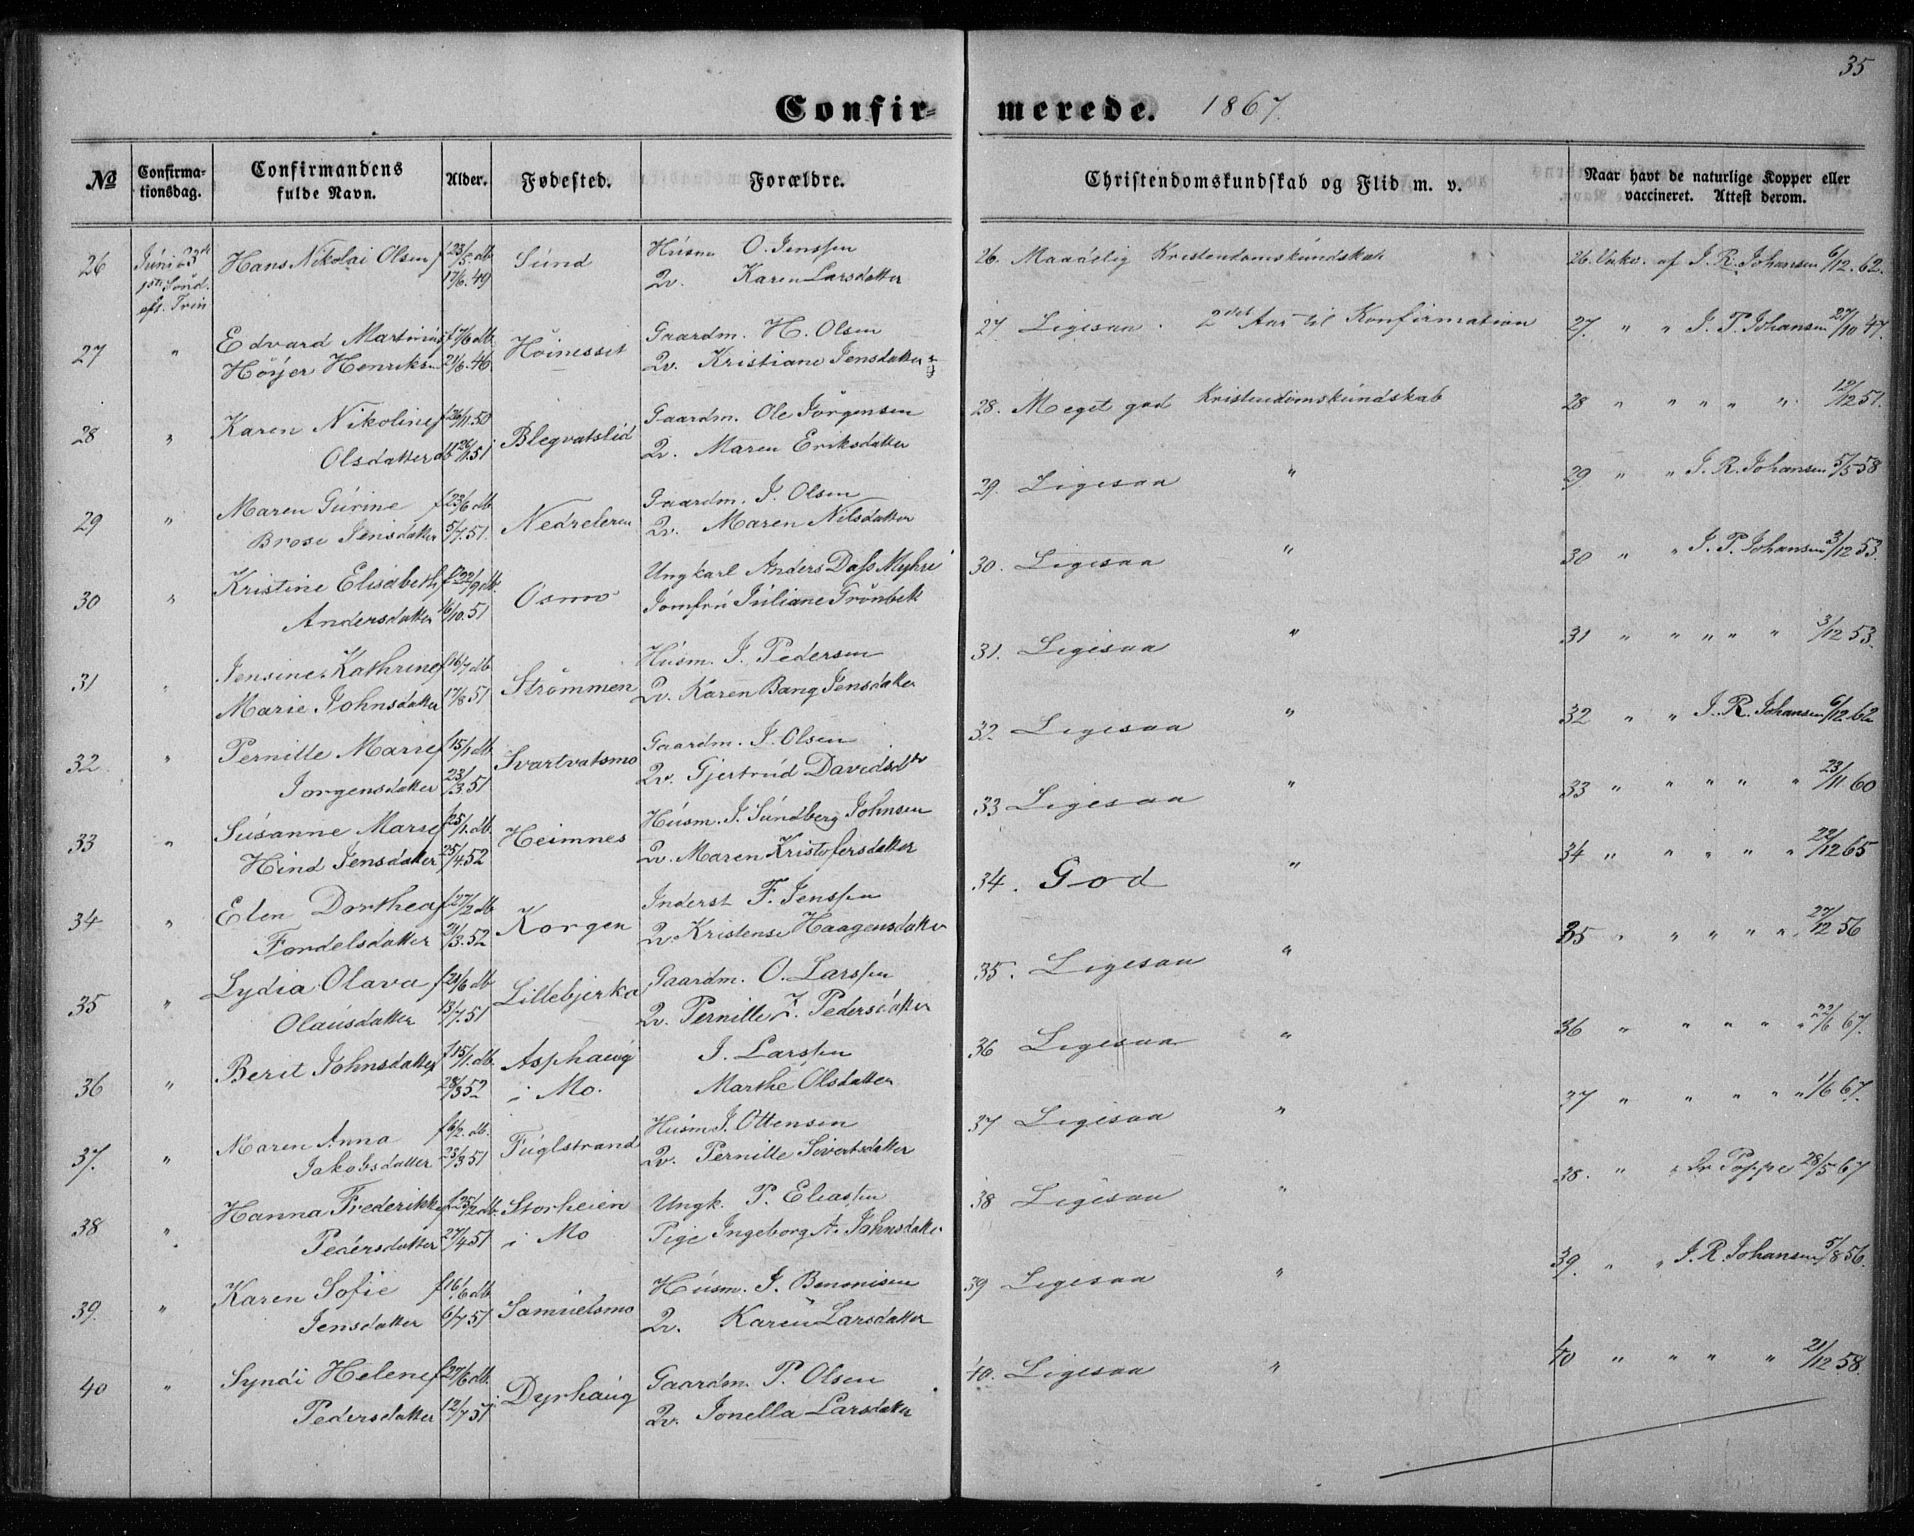 35
Confirmerede. 1867.
No
Confirmationsdag.
Confirmandens fulde Navn.
Alder.
Fødested.
Forældre.
Christendomskundskab og Flid m. v.
Naar havt de naturlige Kopper eller vaccineret. Attest derom.
26 Juni 23de Hans Nikolai Olsen f 23/5 db. Sund Husm O. Jenssen 26. Maadelig Kristendomskundskab 26. Vakc. af J. R. Johansen 6/12. 62.
1ste Sønd. eft. Trin 17/6. 49 Qv. Karen Larsdatter
27 " Edvard Martinius f 7/6 db. Høinesset Gaardm. H. Olsen 27 Ligesaa. 2det Aar til Konfirmation 27. " " J. P. Johansen 27/10 47.
Höyer Henriksen 21/6. 46. Qv. Kristiane Jensdatter
28 " Karen Nikoline f 26/11. 50 Blegvatslid Gaardm. Ole Jörgensen 28. Meget god Kristendomskundskab 28 " " " " " 12/12 51.
Olsdatter db 51 Qv. Maren Eriksdatter
29 " Maren Gurine f 23/6 db Nedreleren Gaardm. J. Olsen 29. Ligesaa " 29 " " J. R. Johansen 5/5 58
Brose Jensdatter 5/7. 51. Qv. Maren Nilsdatter
30 " Kristine Elisabeth f 22/9 db. Osmo Ungkarl Anders Dass Myhre 30. Ligesaa " 30 " " J. P. Johansen 3/12 53.
Andersdatter 6/10. 51 Jomfru Juliane Grønbek
31 " Jensine Kathrine f 16/7 db Strømmen Husm. J. Pedersen 31. Ligesaa " 31 " " " " " 3/12 53.
Marie Johnsdatter 17/8 51 Qv. Karen Bang Jensdatter
32 " Pernille Marie f 15/1 db. Svartvatsmo Gaardm. J. Olsen 32. Ligesaa " 32 " " J. R. Johansen 6/12 62
Jorgensdatter 23/3 51 Qv. Gjertrud Davidsdtr
33 " Susanne Marie f 25/1. db. Heimnes Husm. J. Sundberg Johnsen 33 Ligesaa " 33 " " " " " 23/11 60
Hind Jensdatter 25/4. 52 Qv. Maren Kristofersdatter
34 " Elen Dorthea f 27/2 db Korgen Inderst F. Jenssen 34. God " 34 " " " " " 22/12 65
Fordelsdatter 21/3. 52 Qv. Kristense Haagensdatter
35 " Lydia Olava f 21/6 db Lillebjerka Gaardm. O. Larssen 35. Ligesaa " 35 " " " " " 27/12 56
Olausdatter 13/7. 51 Qv. Pernille Z. Pedersdatter
36 " Berit Johnsdatter f 15/1. db. Asphaug J. Larssen 36 Ligesaa " 36 " " " " " 22/6 67.
28/3 52 i Mo. Marthe Olsdatter
37. " Maren Anna f 6/2. db. Fuglstrand Husm J. Ottensen 37 Ligesaa " 37 " " " " " 1/6 67.
Jakobsdatter 23/3 51 Qv. Pernille Sivertsdatter
38 " Hanna Frederikke f 25/2 db. Storheien Ungk. P. Eliassen 38 Ligesaa " 38. " " Dr Poppe 28/5 67
Pedersdatter 27/4 51 i Mo Pige Ingeborg A. Johnsdatter
39. " Karen Sofie f 16/6 db Samuelsmo Husm. J. Benonisen 39 Ligesaa " 39. " " J. R. Johansen 5/8 56.
Jensdatter 6/7 51 Qv. Karen Larsdatter
40 " Synði Helene f 27/6 db. Dyrhaug Gaardm. P. Olsen 40. Ligesaa " 40 " " " " 21/12 58.
Pedersdatter 12/7 51 Qv. Jonella Larsdatter